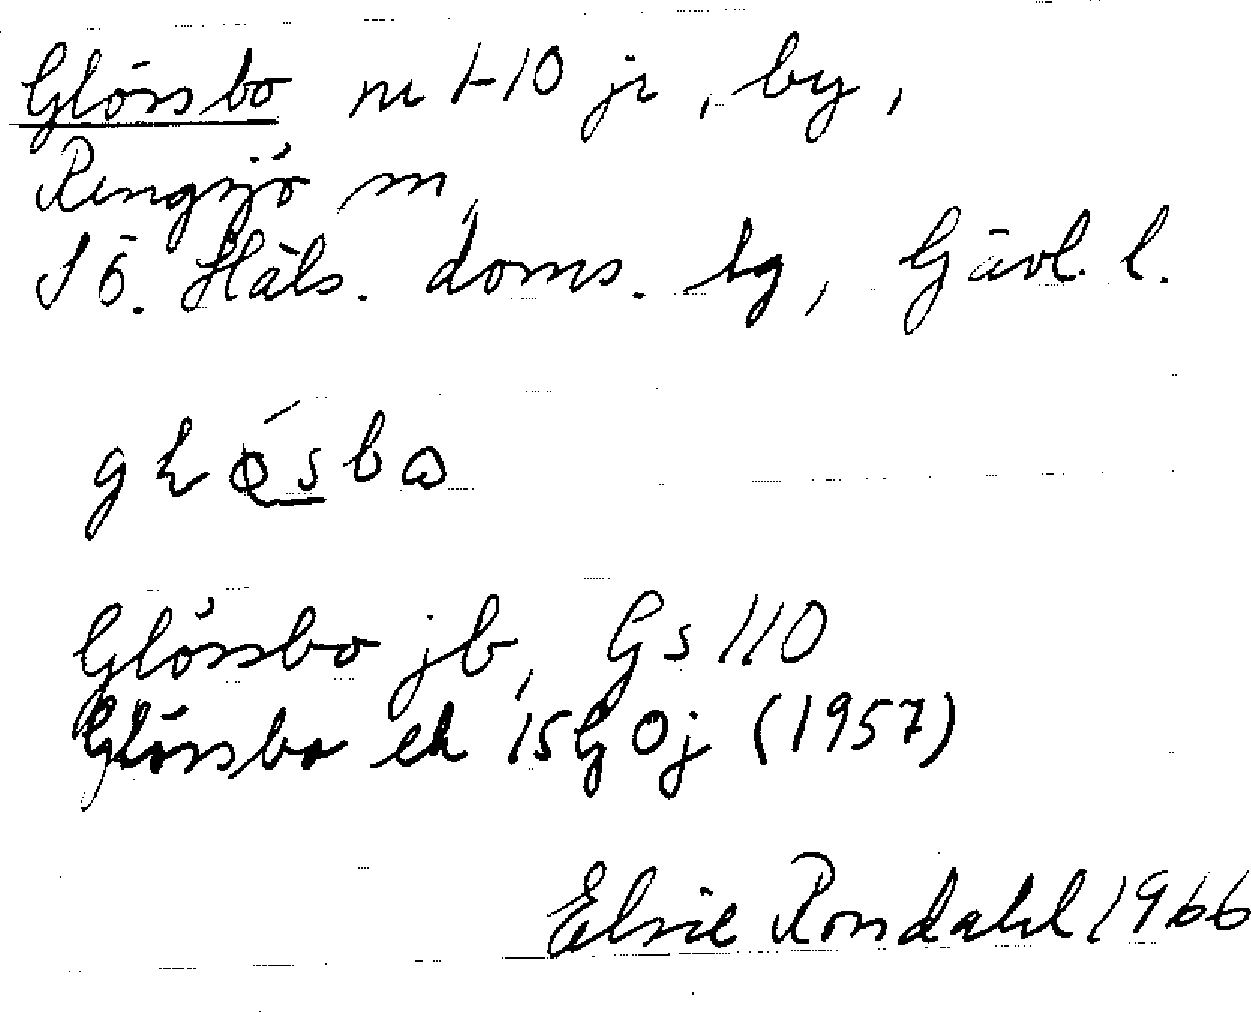 Glössbo nr 1-10 jr, by,
Rengsjö sn,
Sö. Häls. doms. tg, Gävl. l.
Glössbo jb, Gs 110
Glössbo ek 15G 0j (1957)
Elsie Rondahl 1966